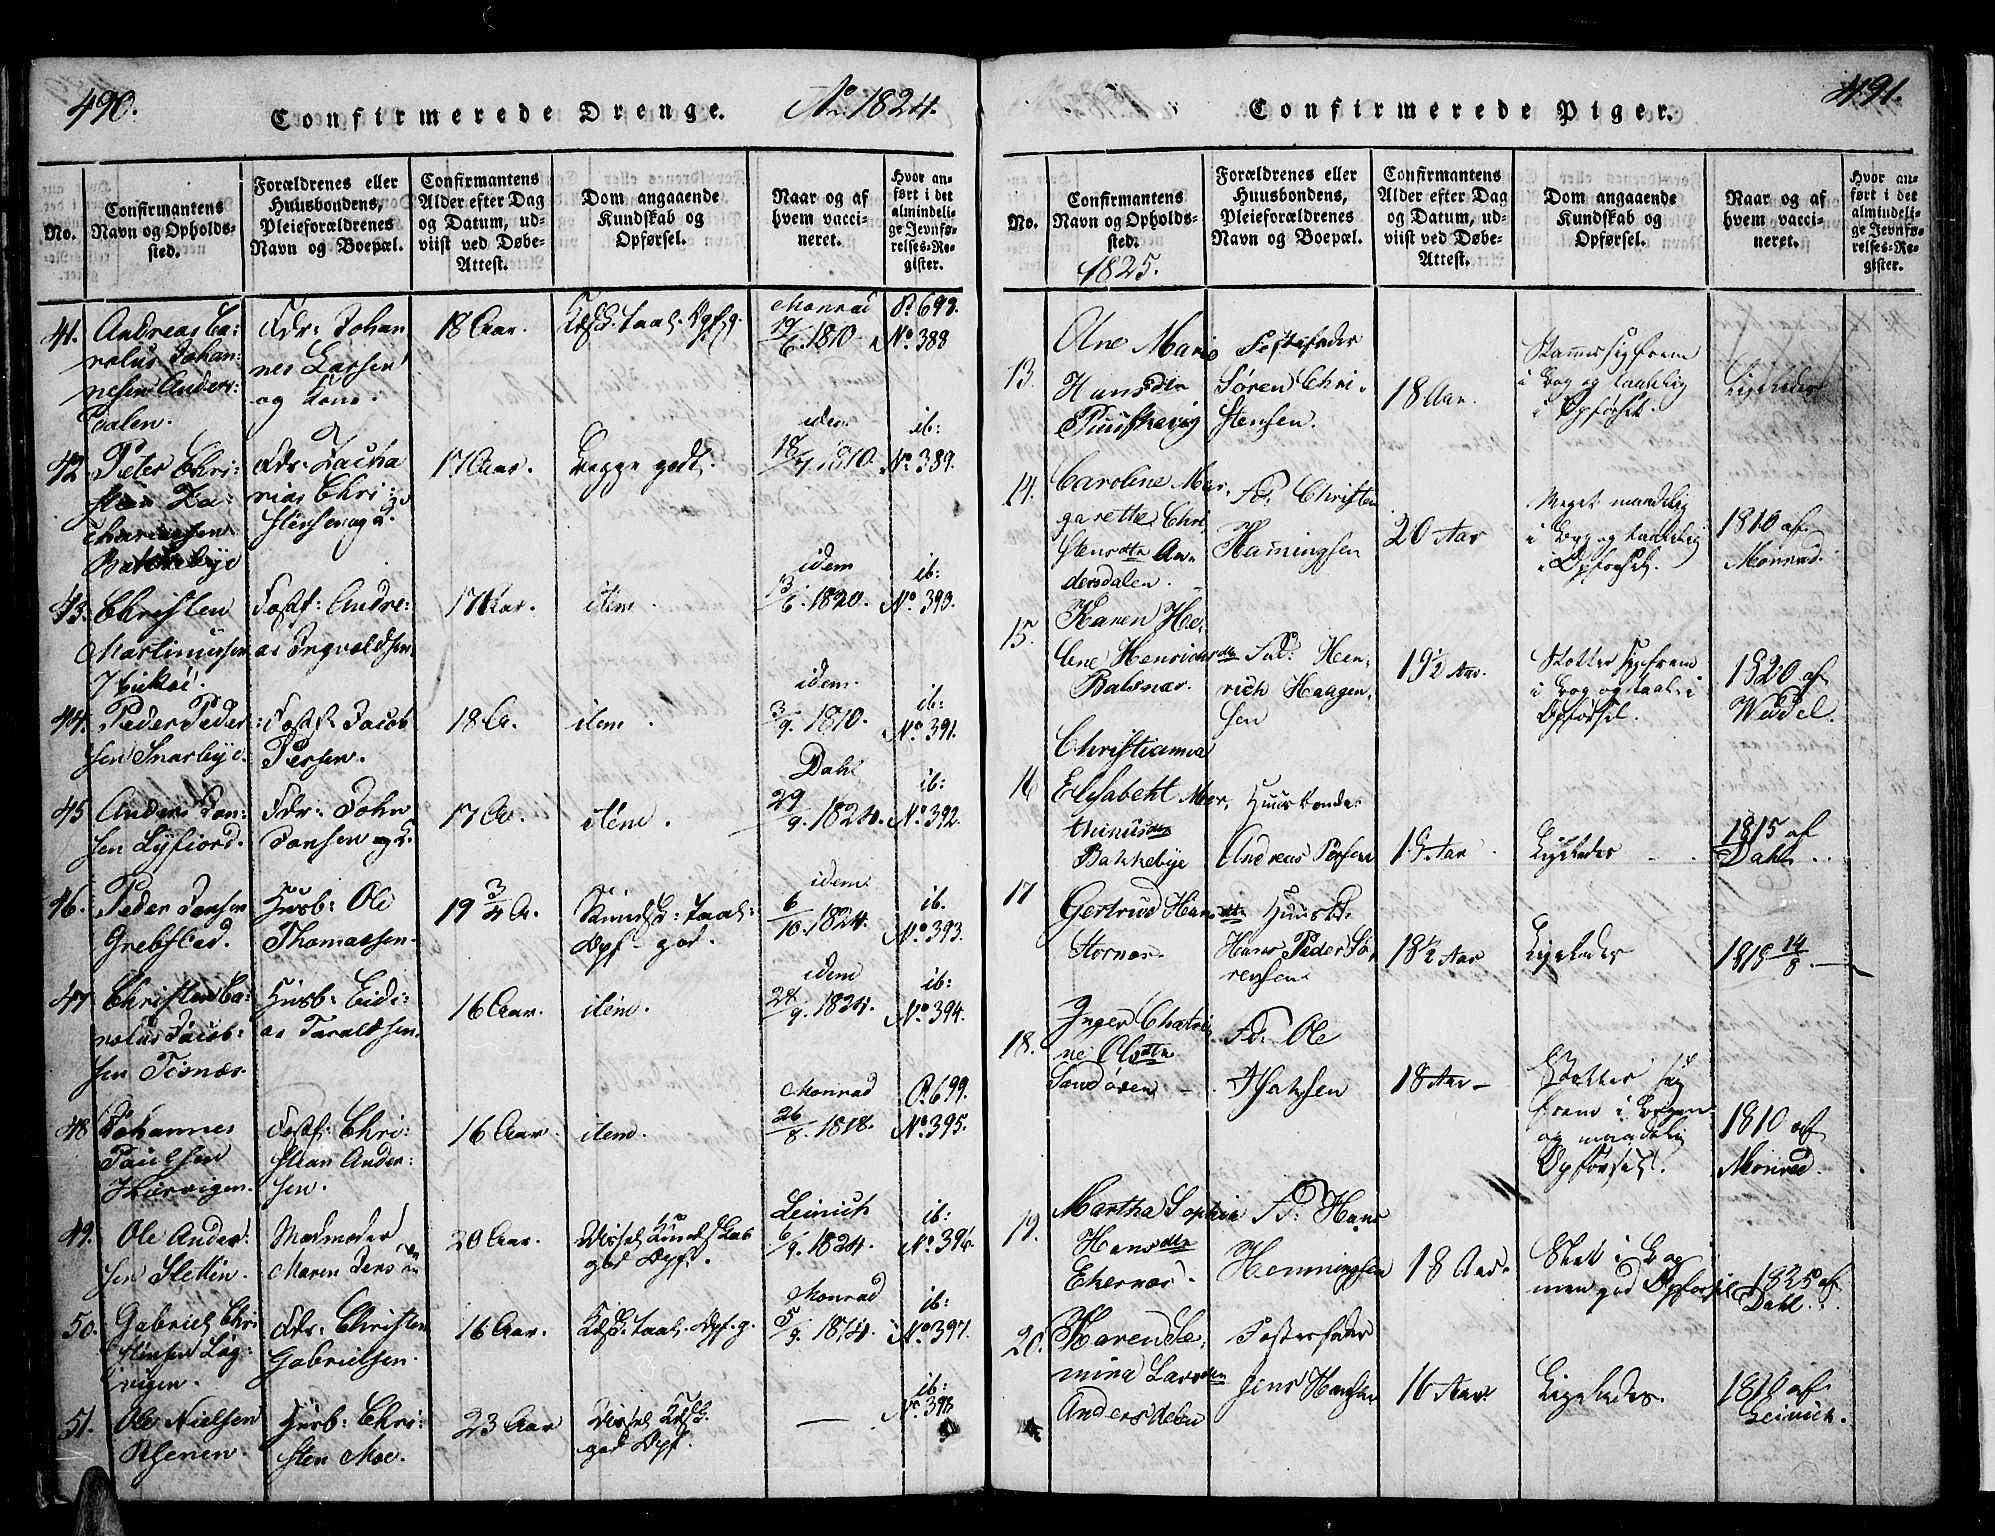 490.
Confirmerede Drenge.
No 1824.
No.
Confirmantens
Navn og Opholds-
sted.
Forældrenes eller
Huusbondens,
Pleieforældrenes
Navn og Boepæl.
Confirmantens
Alder efter Dag
og Datum, ud-
viist ved Døbe-
Attest.
Dom angaaende
Kundskab og
Opførsel.
Naar og af
hvem vacci-
neret.
Hvor an-
ført i det
almindeli-
ge Jevnfø-
relses-Re-
gister.
41. Andreas Ca-
rolus Johan-
nesen Anders-
dalen.
Fdr: Johan
nes Larsen
og Kone.
18 Aar.
Kdsk. taal. Opf. g.
Monrad
17/6. 1810.
P. 698.
No. 388
42. Peter Chri-
stian Za-
chariassen
Bakkebye
Fdr: Zacha
rias Chri-
stensen og K.
17 Aar.
Begge godt.
idem
18/7 1810.
ib:
No. 389.
43. Christen
Martinussen
Fostf: Andre-
as Ingvaldsen
17 Aar.
item.
idem
13/6. 1820.
ib:
No. 390.
44. Peder Peder
sen Snarbye.
Fostf: Jacob
Persen.
18 A.
item.
idem.
3/9. 1810.
ib:
No. 391.
45 Anders Jon-
sen Lyfiord.
Fdr: John
Jonsen og K.
17 A.
item.
Dahl
29/9. 1824.
ib:
No. 392.
46. Peder Jensen
Grebstad.
Husb: Ole
Thomassen.
19 3/4 A.
Kundsk: taal:
Opf. god.
idem
6/10. 1824.
ib.
No. 393.
47 Christen Ca-
rolus Jacob-
sen Tisnæs.
Husb: Eidi-
as Taraldsen.
16 Aar.
item.
idem
28/9. 1824.
ib:
No. 394.
48 Johannes
Paulsen
Fostf. Chri-
stian Ander-
sen.
16 Aar.
item.
Monrad
26/8. 1818.
P. 699.
No. 395.
49. Ole Ander-
sen Slettin.
Madmoder
Maren Jensdn
20 Aar.
god Opf.
Leinich
6/9. 1824.
ib:
No. 396
50. Gabriel Chri
stensen Lag-
vigen.
Fdr: Christen
Gabrielsen.
16 Aar.
Kdsk. taal. Opf. g.
Monrad
5/9. 1814.
ib:
No. 397.
51. Ole Nielsen
Husb: Chri-
sten Moe.
23 Aar
god Opf.
—
ib:
No. 398
491.
Confirmerede Piger.
No.
Confirmantens
Navn og Opholds-
sted.
1825.
Forældrenes eller
Huusbondens,
Pleieforældrenes
Navn og Boepæl.
Confirmantens
Alder efter Dag
og Datum, ud-
viist ved Døbe-
Attest.
Dom angaaende
Kundskab og
Opførsel.
Naar og af
hvem vacci-
neret.
Hvor an-
ført i det
almindeli-
ge Jevnfø-
relses-Re-
gister.
13. Ane Marie
Hansdtr
Fosterfader
Søren Chri-
stensen.
18 Aar.
Stammer sig frem
i Bog og taalelig
i Opførsel.
Ligeledes
14. Caroline Mar-
garethe Chri
stensdtr An-
dersdalen.
Fd. Christen
Hamingsen
20 Aar
Meget maadelig
i Bog og taalelig
i Opførsel.
1810 af
Monrad.
15. Karen He-
lene Henrichsdtr
Balsnæs.
Fad: Hen-
rich Haagen-
sen
19 1/2 Aar.
Stotter sig frem
i Bog og taal. i
Opførsel.
1820 af
Weddel.
16 Christianna
Elisabeht Mar-
thinusdtr
Bakkebye
Huusbonde
Andreas Persen
Aar
Ligeledes
1815 af
Dahl
17 Gertrud Hansdtr
Stornæs.
Huusbd.
Hans Peder Sø-
rensen
18 1/2 Aar
Ligeledes
1818 14/8.
18. Inger Chatri-
ne Olsdtr
Sandøren
Fd. Ole
18 Aar
Stotter sig
frem i Bogen
og maadelig
Opførsel.
1810 af
Monrad.
19. Martha Sophia
Hansdtr
Ekernæs.
Fd: Hans
Hemmingsen
18 Aar.
Slet i Bog
men god Opførsel
1825 af
Dahl.
20. Maren Se-
mina Larsdtr
Andersdalen
Fosterfader
Jens Hansen
16 Aar.
Ligeledes.
1810 af
Leinich.